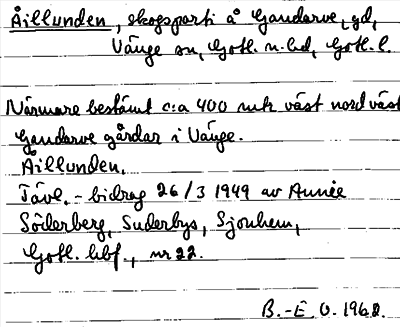 Åillunden, skogsparti å Gandarve, gd,
Vänge sn, Gotl. n. hd, Gotl. l.
Närmare bestämt c:a 400 mtr väst nord väst
Gandarve gårdar i Vänge.
Åillunden.
Tävl.-bidrag 26/3 1949 av Annie
Söderberg, Suderbys, Sjonhem,
Gotl. hbf., nr 22.
B.-E. O. 1968.